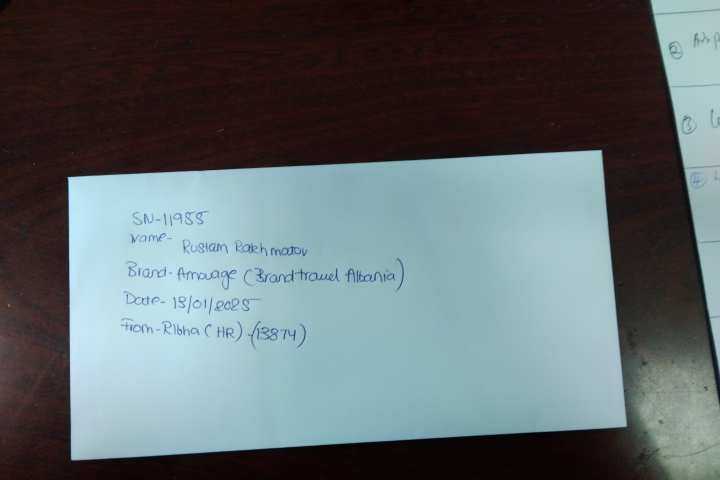 SN-11955
Name-
Rustam Rakhmatov
Brand-Amouage (Brand travel Albania)
Date- 18/01/2025
From-Ribha (HR)-(13874)
②
③
④